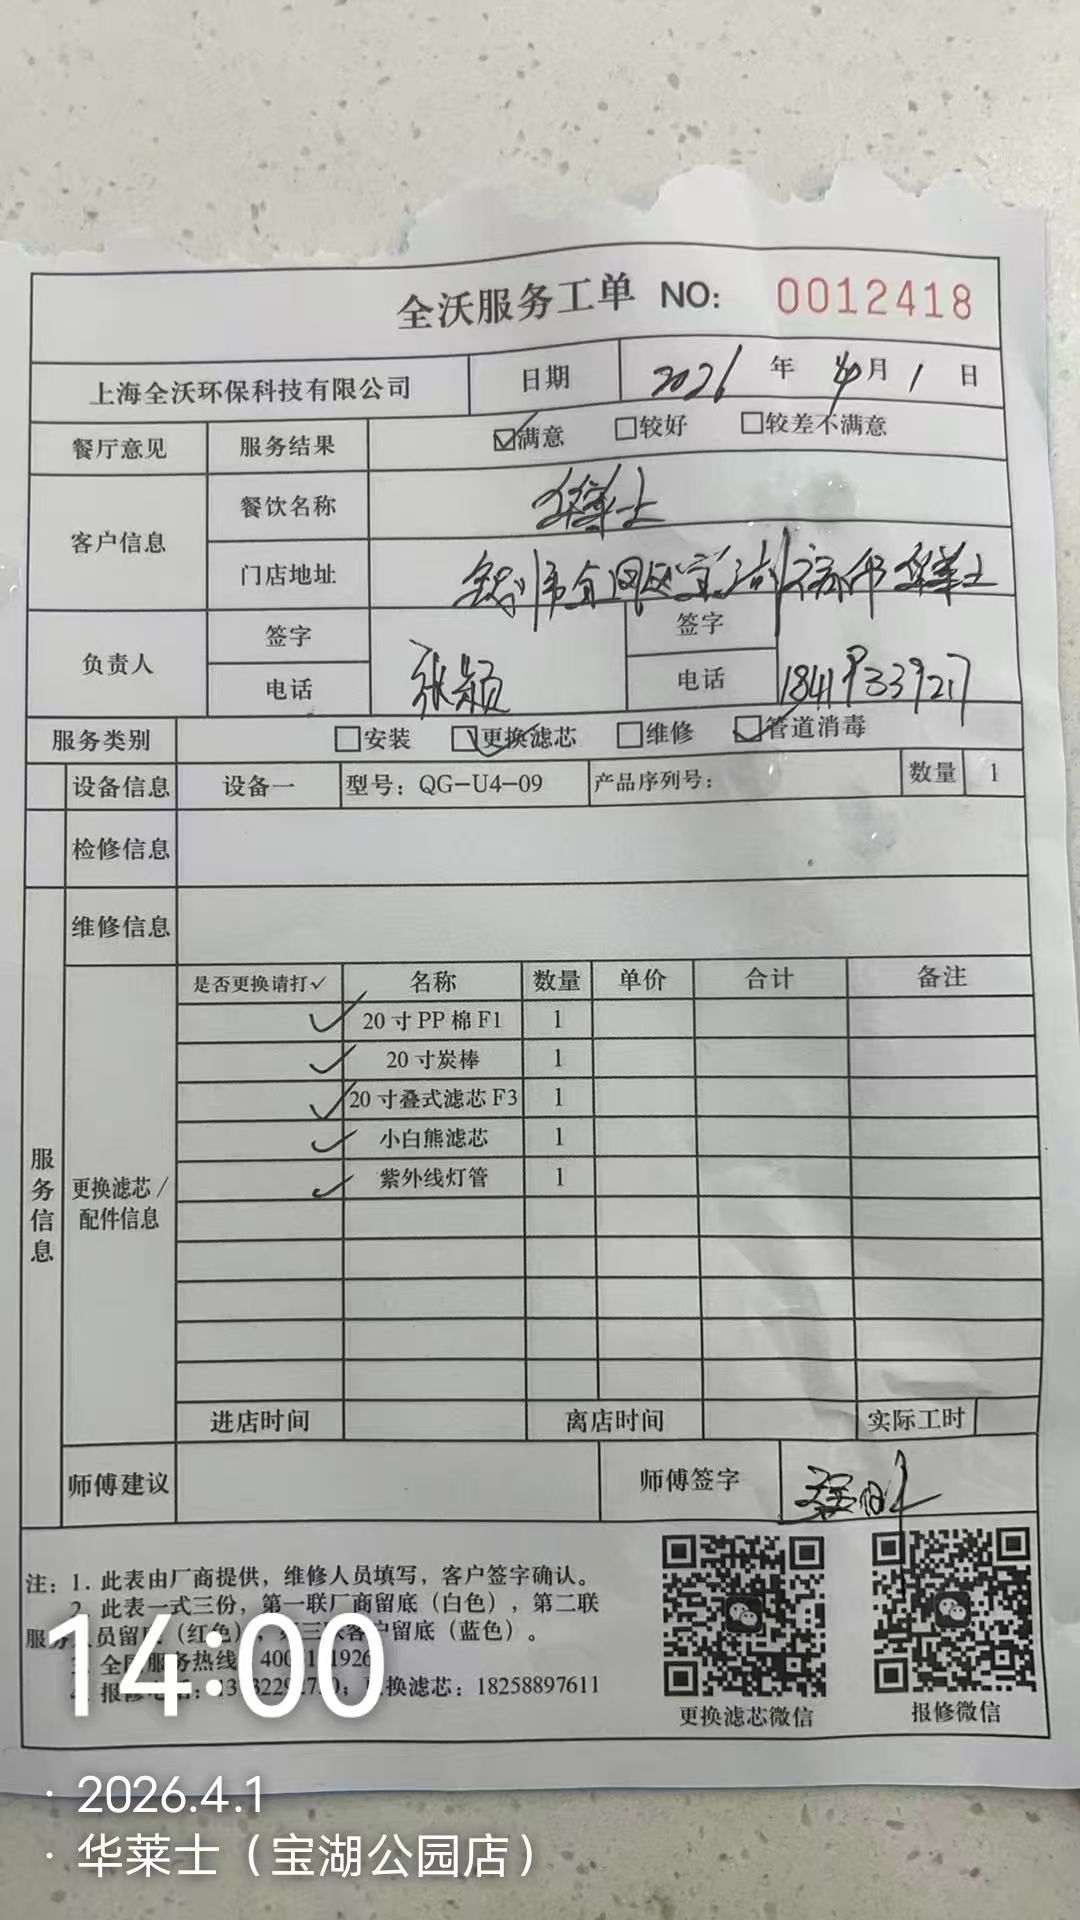 全沃服务工单 NO: 0012418
上海全沃环保科技有限公司 日期 2026 年 4 月 1 日
餐厅意见 服务结果 ☑满意 □较好 □较差不满意
客户信息 餐饮名称 华莱士
门店地址 市金凤区宝湖 华莱士
负责人 签字 张颖 签字
电话 电话 18419339217
服务类别 □安装 ☑更换滤芯 □维修 ☑管道消毒
设备信息 设备一 型号：QG-U4-09 产品序列号： 数量 1
检修信息
维修信息
服务信息
更换滤芯/配件信息
是否更换请打✓ 名称 数量 单价 合计 备注
✓ 20寸PP棉F1 1
✓ 20寸炭棒 1
✓ 20寸叠式滤芯F3 1
✓ 小白熊滤芯 1
✓ 紫外线灯管 1
进店时间 离店时间 实际工时
师傅建议 师傅签字
注：1. 此表由厂商提供，维修人员填写，客户签字确认。
2. 此表一式三份，第一联厂商留底（白色），第二联
服务人员留底（红色），第三联客户留底（蓝色）。
3. 全国服务热线
4. 报修电话： 更换滤芯：18258897611
更换滤芯微信 报修微信
14:00
· 2026.4.1
· 华莱士（宝湖公园店）